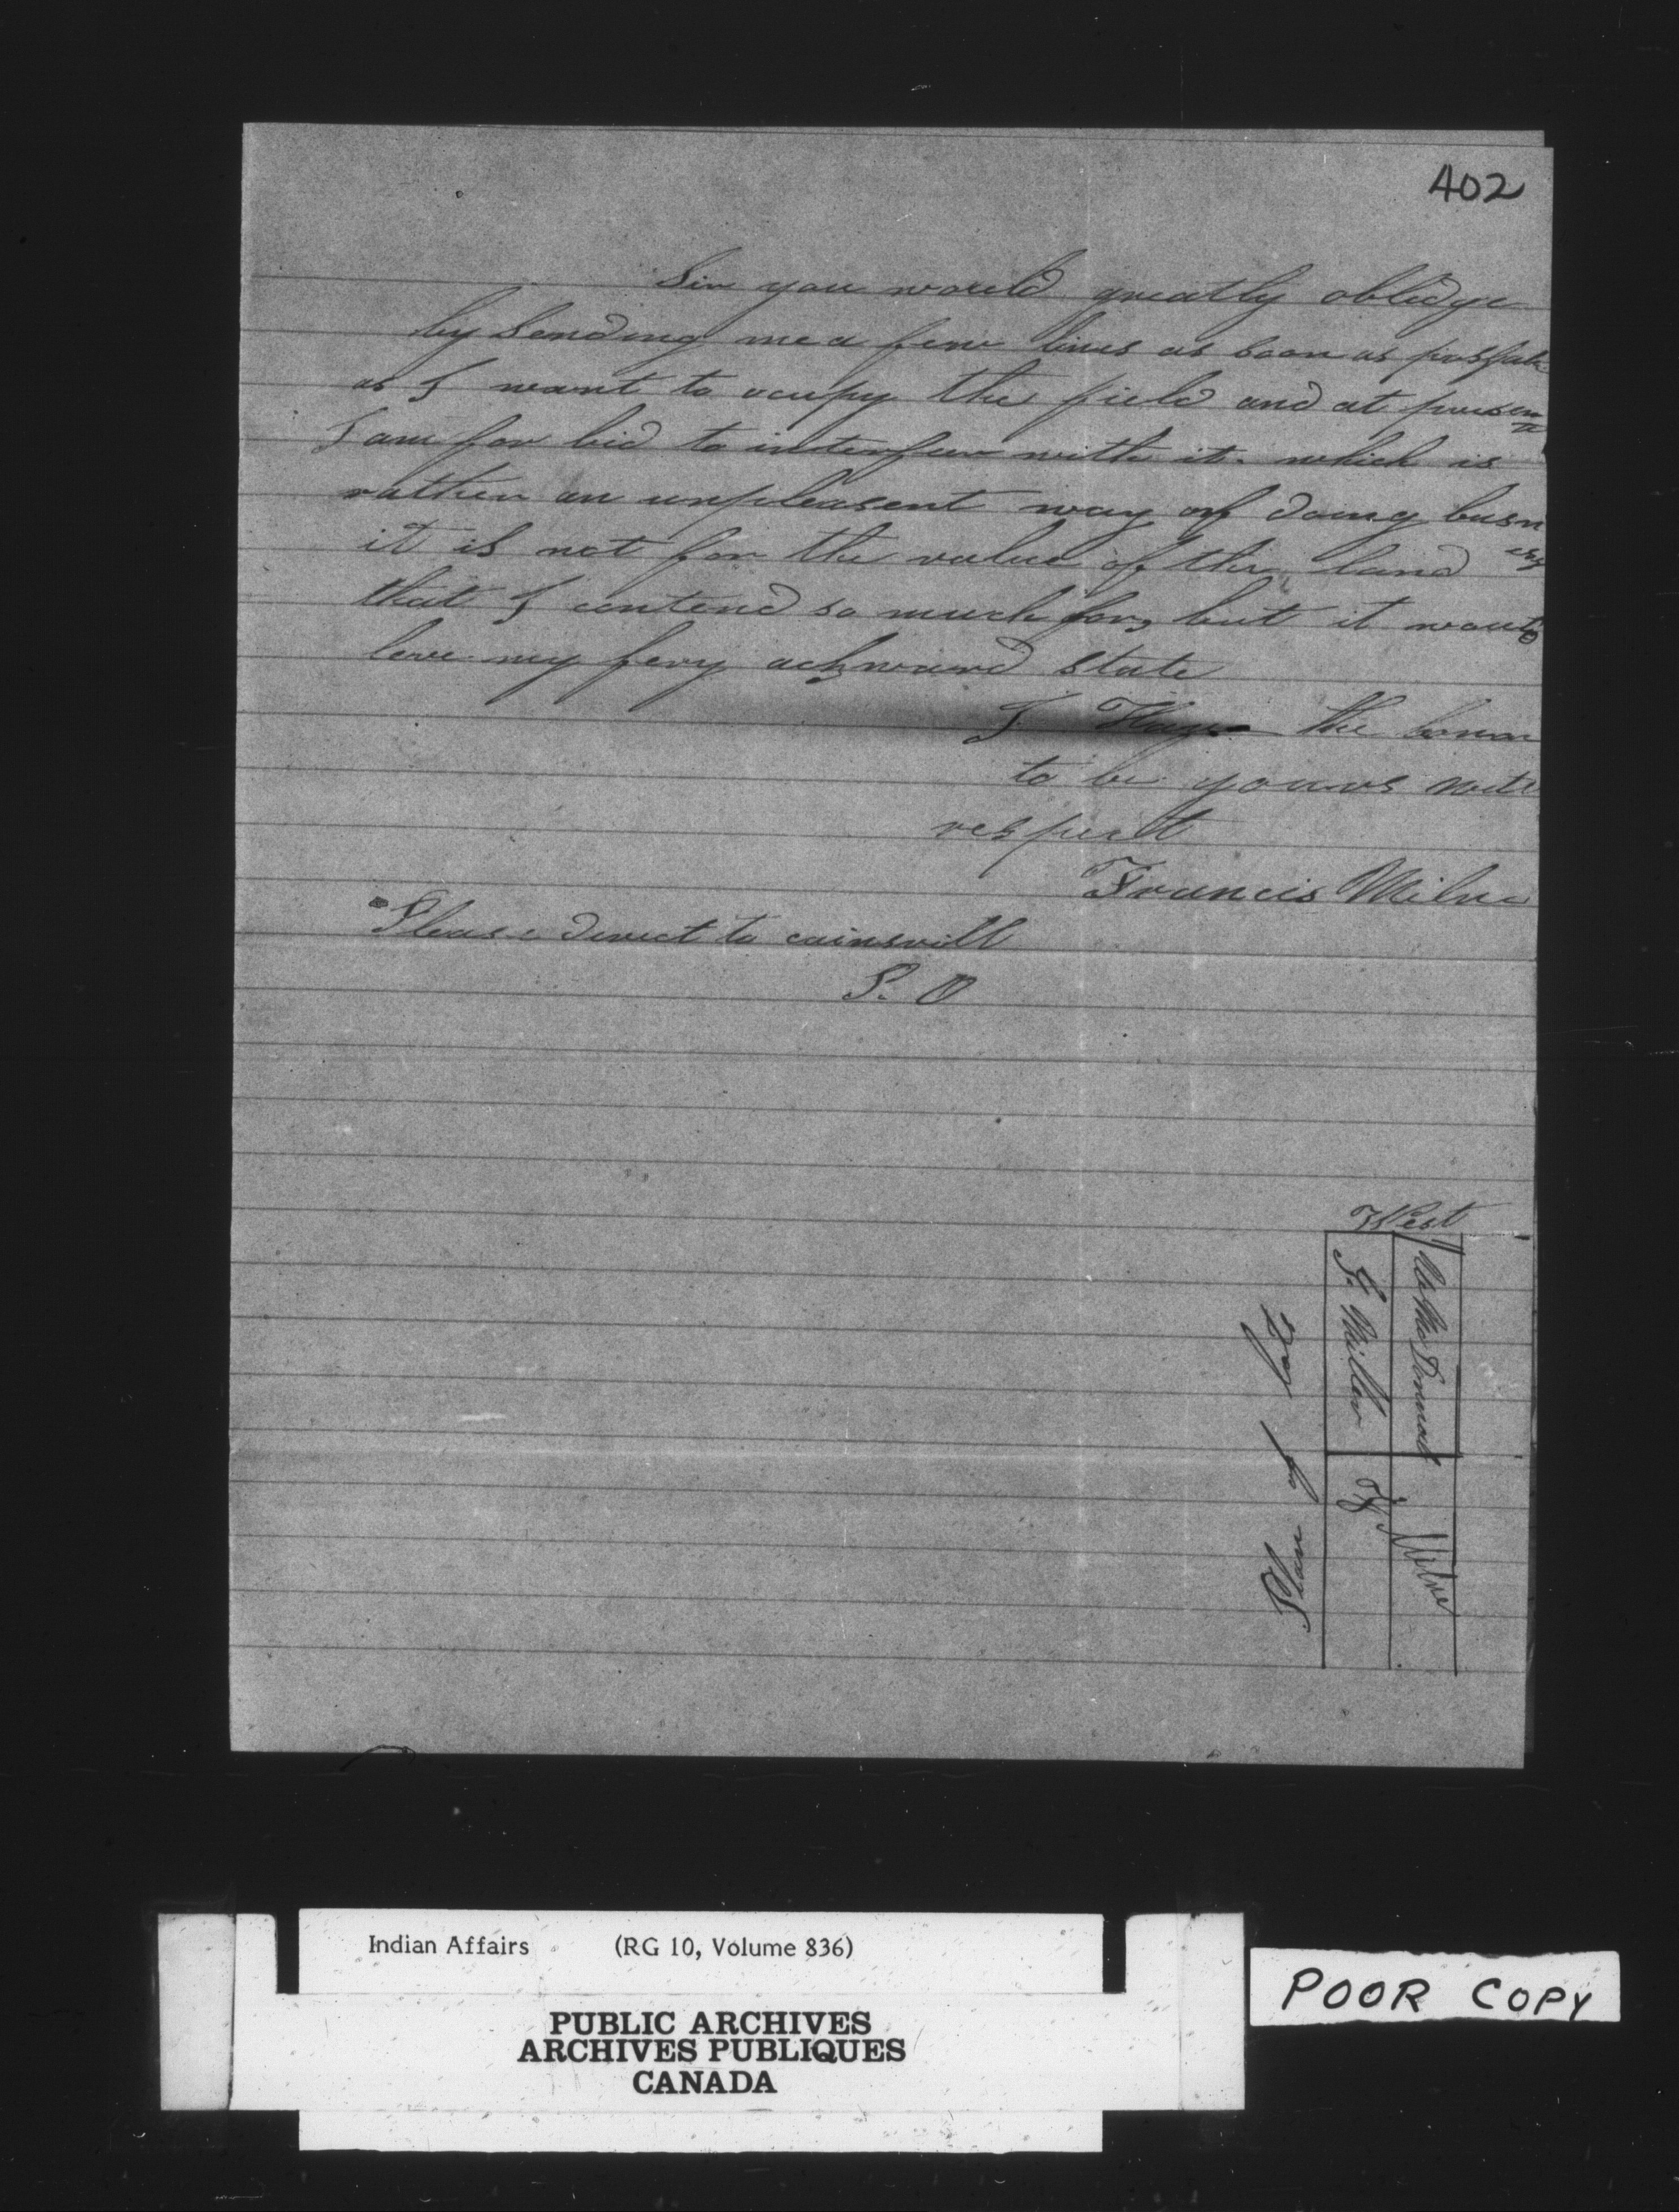 402
Sir you would greatly oblidge
by Sending me a few lines as soon as possable
as I want to ocupy the field and at present
I am for bid to interfeer with it. which is
rather an unpleasent way of doing busness
it is not for the value of the land
that I contend so much for, but it would
leve my feny ackward State
I Have the honor
to be yours with
respect
Francis Milne
Please direct to cainsvill
P. O
West
McDonnal
G. Miller
F. Milne
Plan of Lot
Indian Affairs (RG 10, Volume 836)
PUBLIC ARCHIVES
ARCHIVES PUBLIQUES
CANADA
POOR COPY